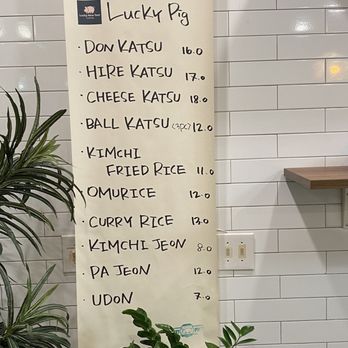 Lucky Pig
· DON KATSU 16.0
· HIRE KATSU 17.0
· CHEESE KATSU 18.0
· BALL KATSU (3pc) 12.0
· KIMCHI
FRIED RICE 11.0
· OMURICE 12.0
· CURRY RICE 13.0
· KIMCHI JEON 8.0
· PA JEON 12.0
· UDON 7.0